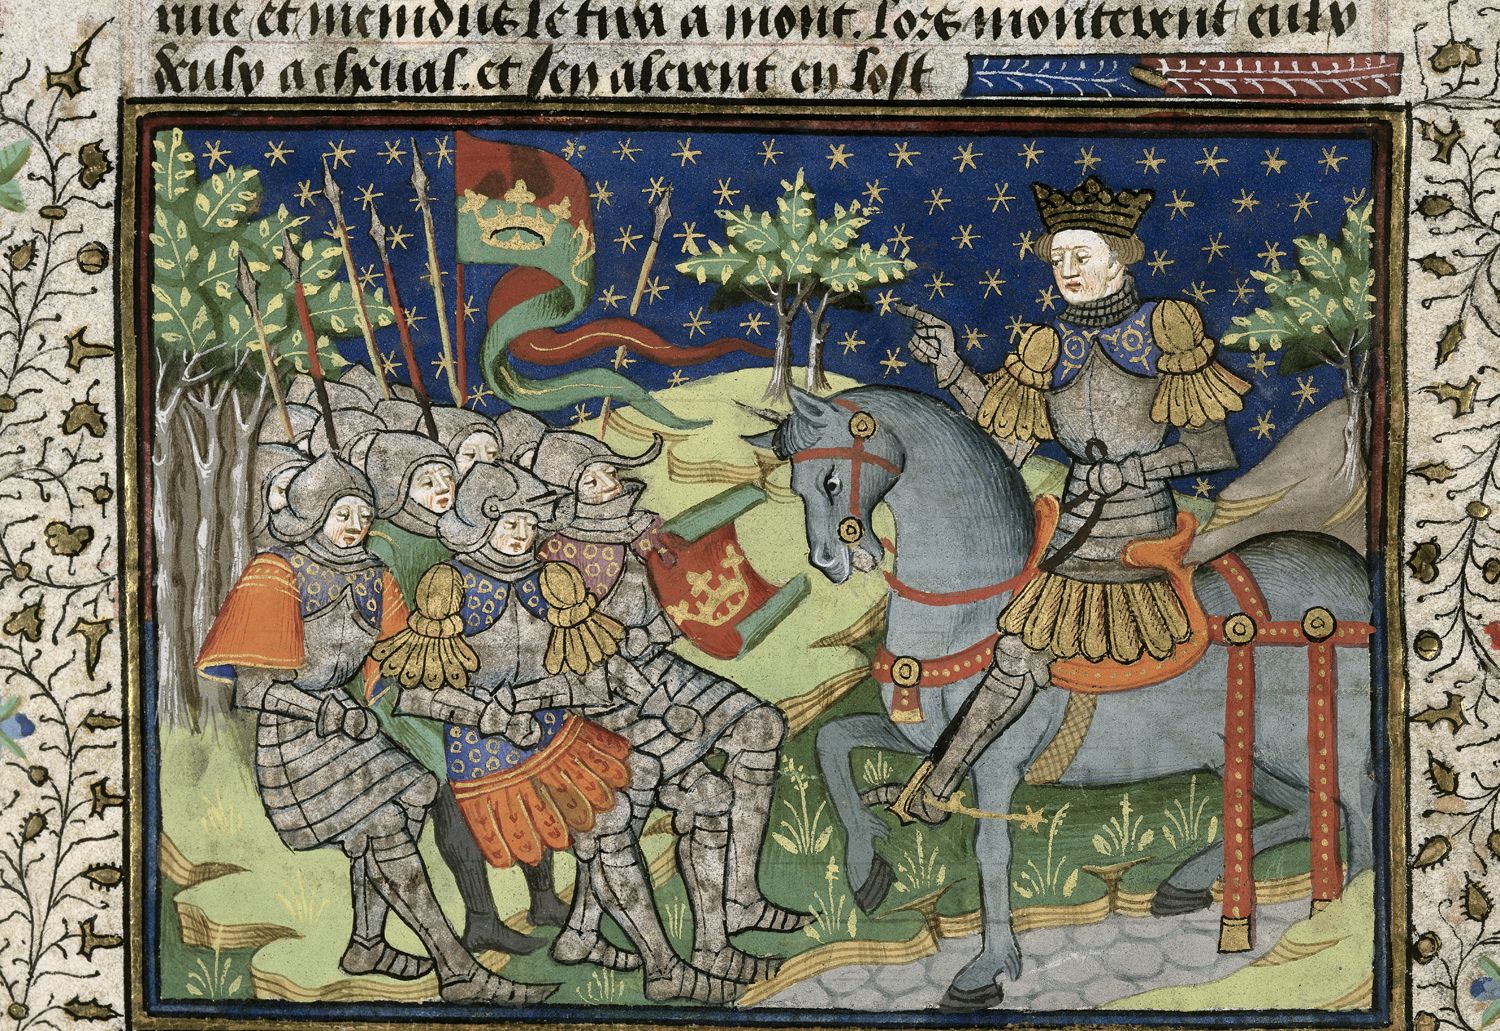 et mendus le tira a mont. lors monterent culx
deulx a cheval. et sen alerent en lost